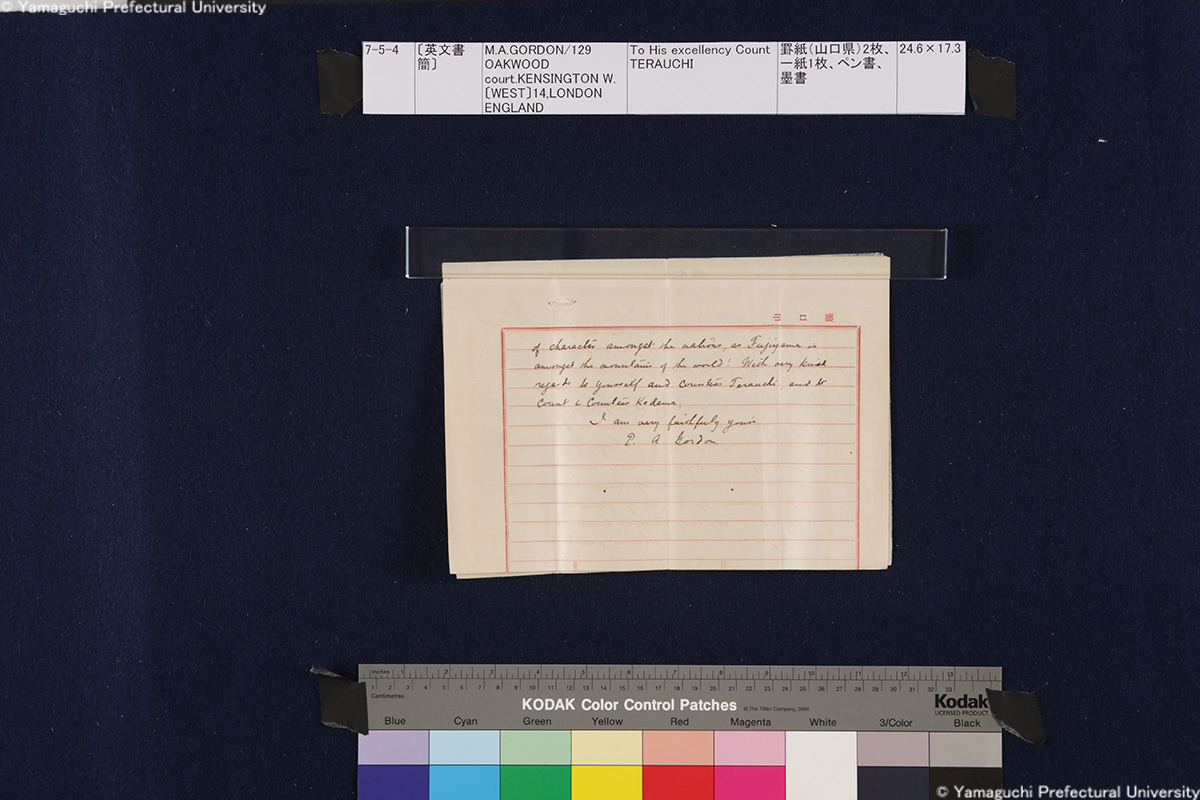 © Yamaguchi Prefectural University
7-5-4
〔英文書
簡〕
M.A.GORDON/129
OAKWOOD
court.KENSINGTON W.
〔WEST〕14,LONDON
ENGLAND
To His excellency Count
TERAUCHI
罫紙(山口県)2枚、
一紙1枚、ペン書、
墨書
24.6×17.3
山口縣
of character amongst the nations, as Fujiyama is
amongst the mountains of the world! With very kind
regards to yourself and Countess Terauchi, and to
Count & Countess Kodama,
I am very faithfully yours
E. A Gordon
Inches 1 2 3 4 5 6 7 8 9 10 11 12 13
1 2 3 4 5 6 7 8 9 10 11 12 13 14 15 16 17 18 19 20 21 22 23 24 25 26 27 28 29 30 31 32 33
Centimetres
KODAK Color Control Patches
© The Tiffen Company, 2000
Kodak
LICENSED PRODUCT
Blue Cyan Green Yellow Red Magenta White 3/Color Black
© Yamaguchi Prefectural University